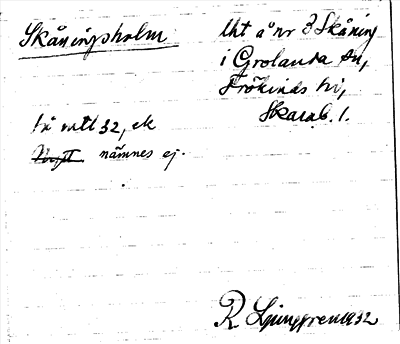 Skåningsholm
Uht å nr 3 Skåning
i Grolanda sn,
Frökinds hd,
Skarab. l.
på mtl 32, ek
nämnes ej.
R Ljunggren 1932